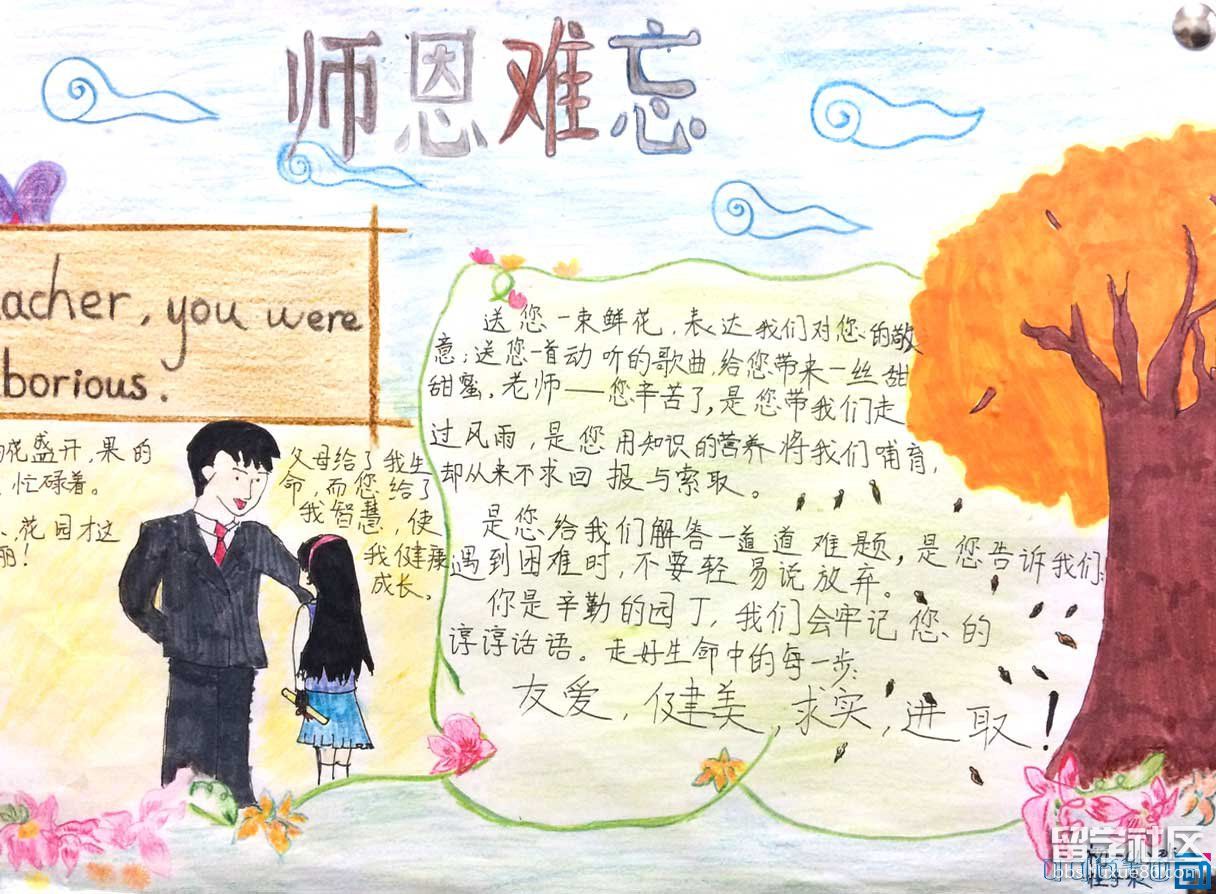 师恩难忘
acher, you were
borious.
花盛开,果的
忙碌着。
、花园才这
丽!
父母给了我生
命,而您给了
我智慧,使
我健康
成长。
送您一束鲜花,表达我们对您的敬
意;送您一首动听的歌曲,给您带来一丝甜
甜蜜,老师——您辛苦了,是您带我们走
过风雨,是您用知识的营养将我们哺育,
却从来不求回报与索取。
是您给我们解答一道道难题,是您告诉我们:
遇到困难时,不要轻易说放弃。
你是辛勤的园丁,我们会牢记您的
谆谆话语。走好生命中的每一步:
友爱,健美,求实,进取!
留学社区
bbs.liuxue86.com